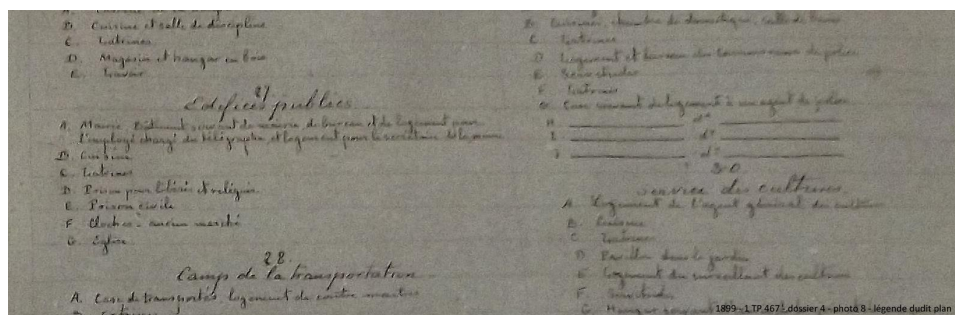 B. Cuisine et salle de discipline
C. Latrines
D. Magasin et hangar en bois
E. Lavoir
27
Edifices publics
A. Mairie. Bâtiment servant de mairie de bureau et de logement pour
l'employé chargé du télégraphe, et logement pour le secrétaire de la mairie
B. Cuisine
C. Latrines
D. Prison pour libérés et relégués.
E. Prison civile
F. Cloches - ancien marché
G. Eglise
28.
Camp de la transportation
A. Case de transportés, logement de contre maitres
B. Cuisine, chambre de domestique, salle de bains
C. Latrines
D. Logement et bureau du commissaire de police
E.
F. Latrines
G. Case servant de logement à un agent de police
H. d°
I. d°
J. d°
30
Service des cultures.
A. Logement de l'agent général des cultures
B. Cuisine
C. Latrines
D. Pavillon dans le jardin
E. Logement du surveillant des cultures
F.
G. Hangar servant
1899 - 1 TP 467 - dossier 4 - photo 8 - légende dudit plan